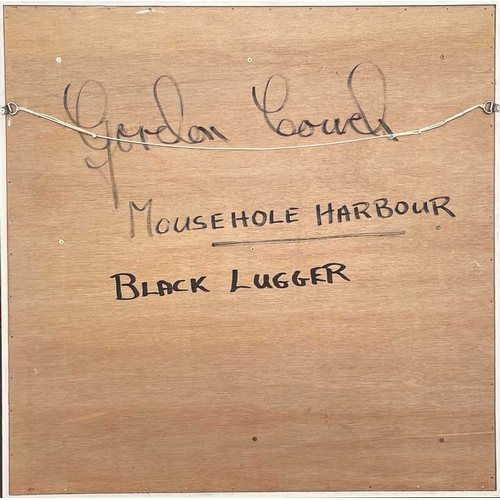 Gordon Couch
MOUSEHOLE HARBOUR
BLACK LUGGER